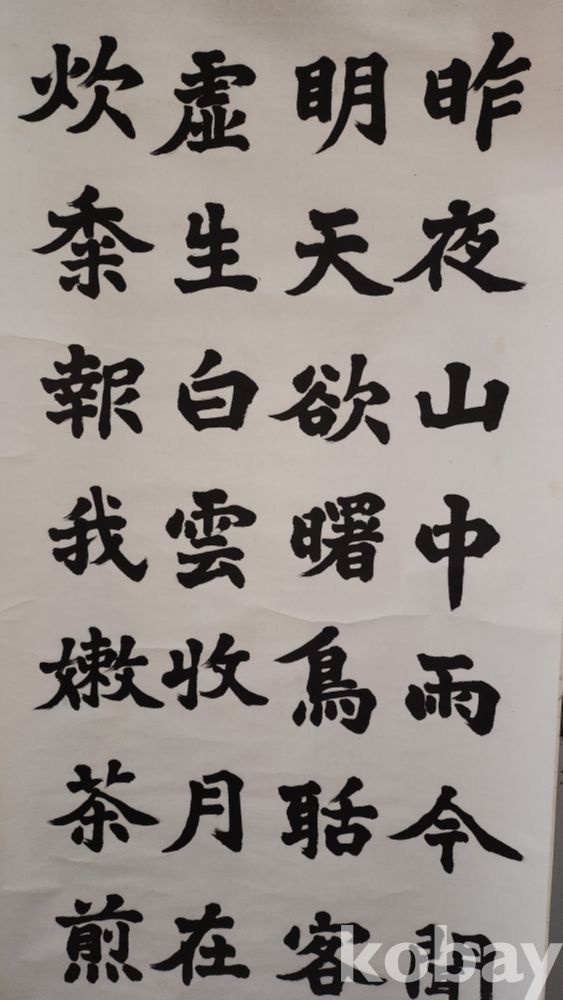 昨夜山中雨今
明天欲曙鳥聒客
虛生白雲收月在
炊黍報我嫩茶煎
kobay